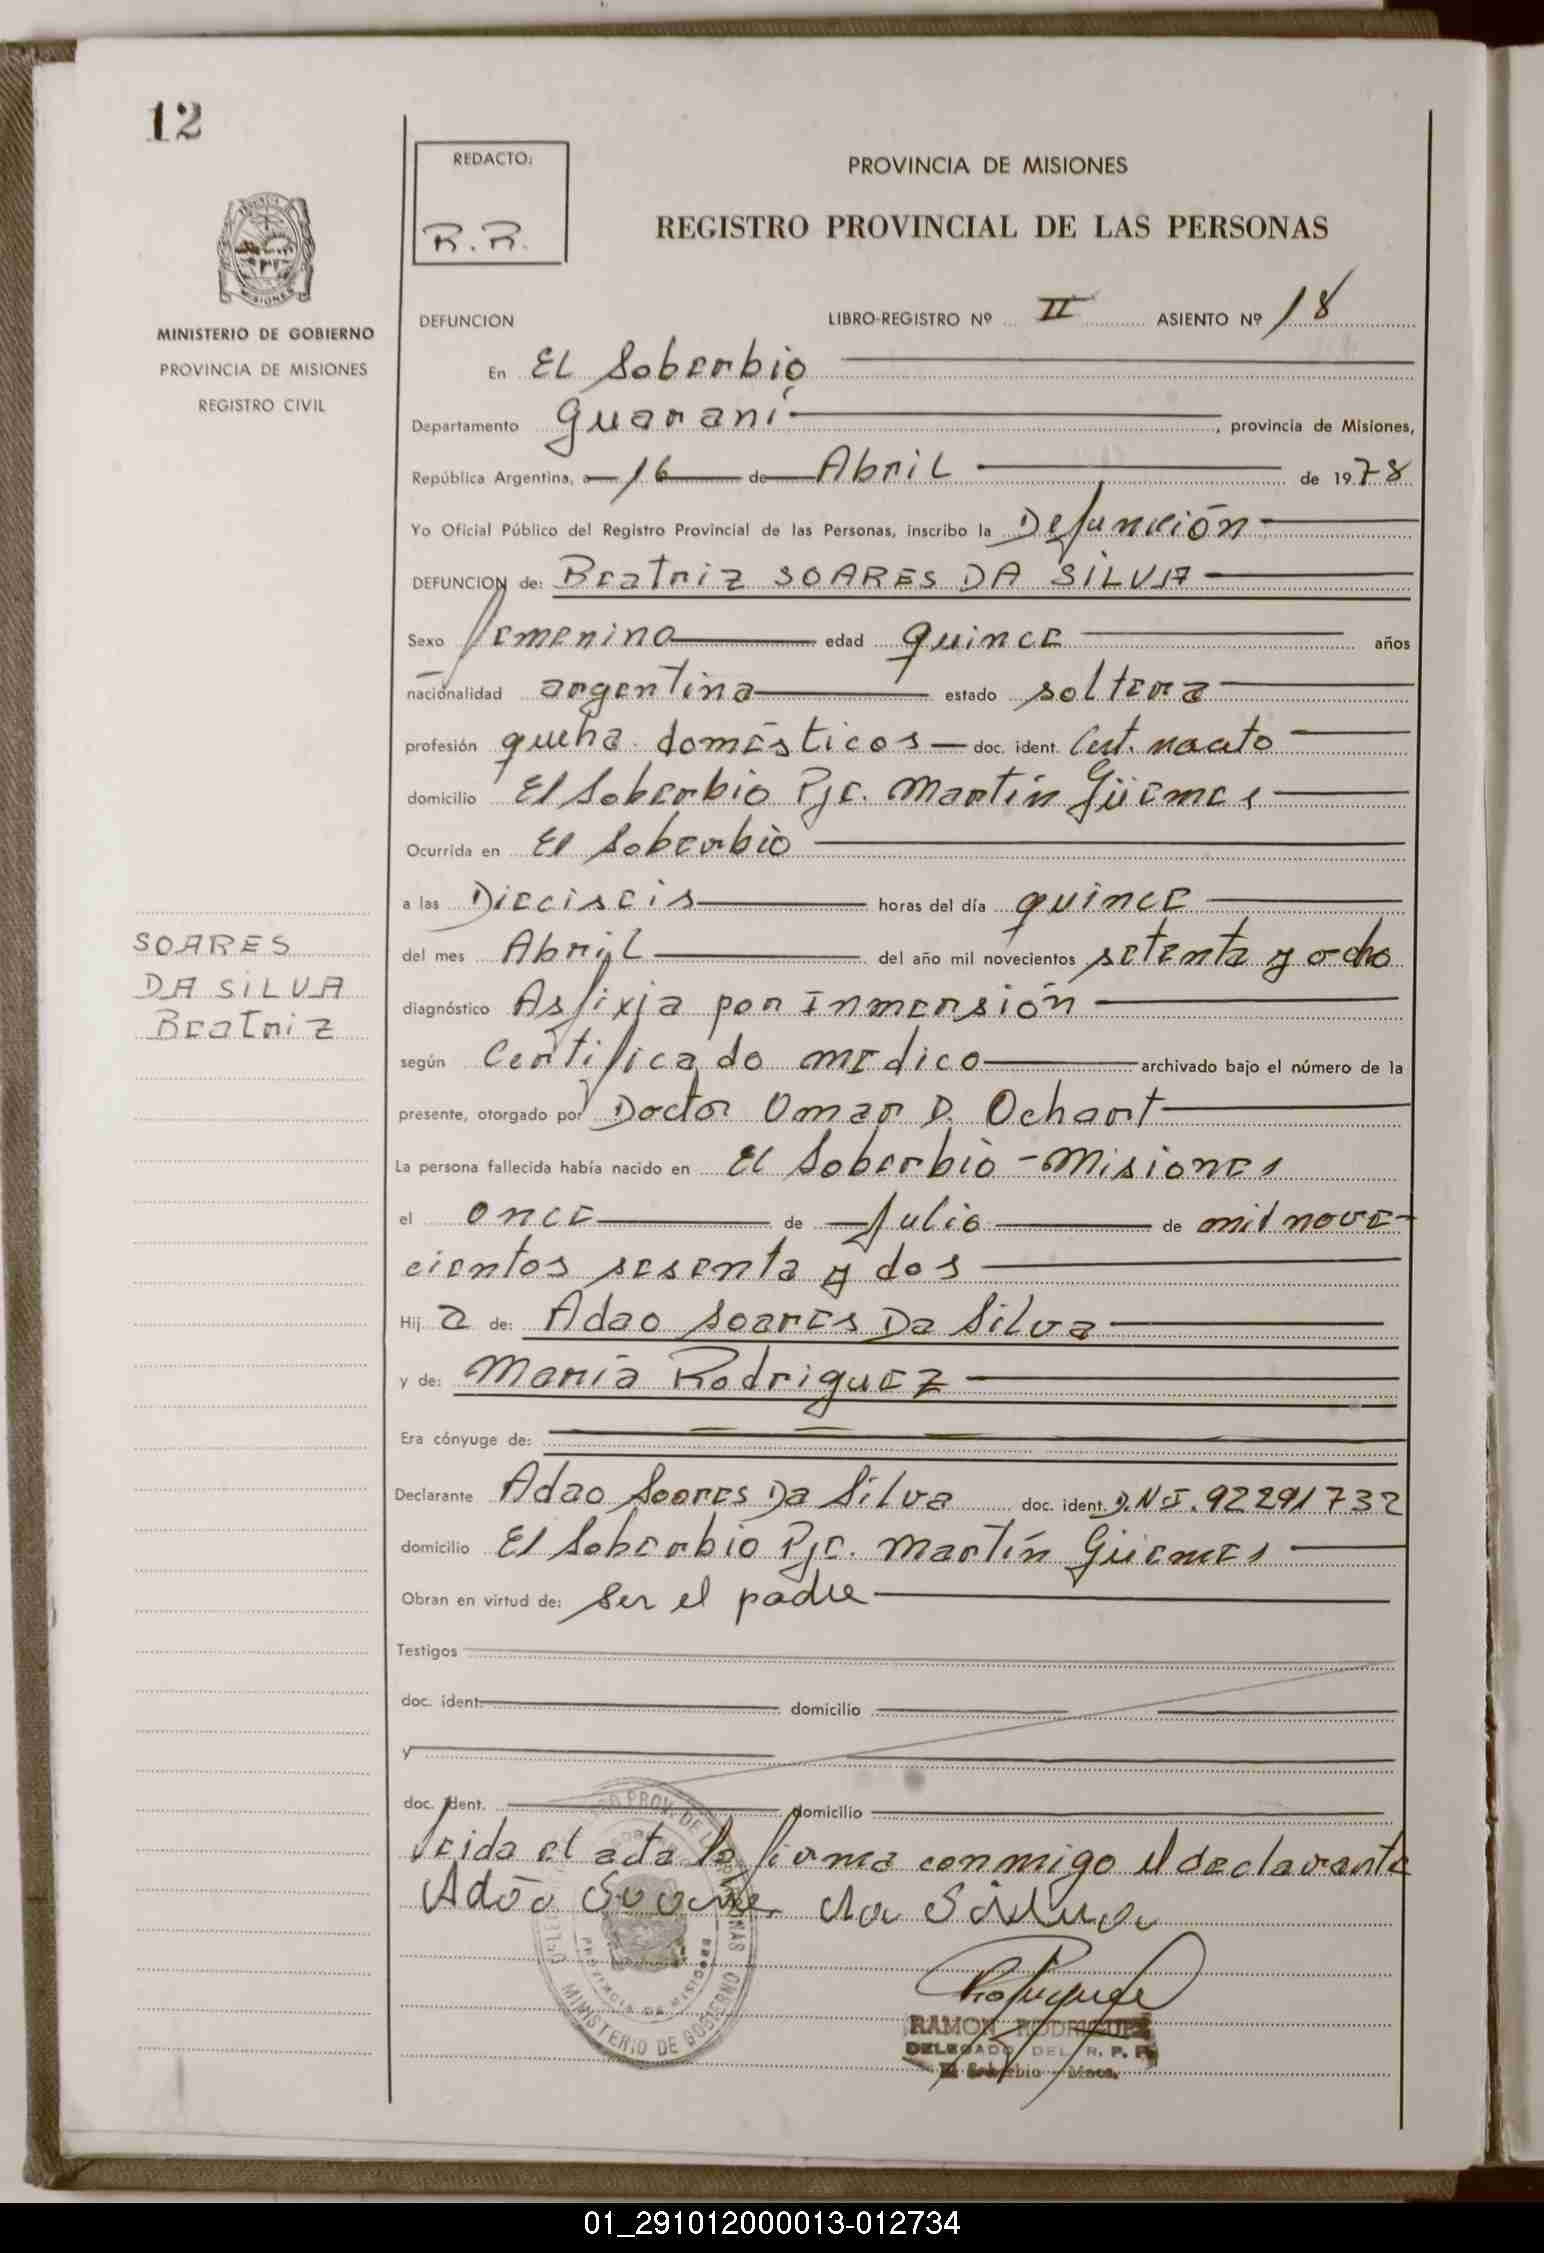 12
REDACTO:
R.R.
PROVINCIA DE MISIONES
REGISTRO PROVINCIAL DE LAS PERSONAS
MISIONES
MINISTERIO DE GOBIERNO
PROVINCIA DE MISIONES
REGISTRO CIVIL
DEFUNCION LIBRO-REGISTRO Nº II ASIENTO Nº 18
En El Soberbio
Departamento Guaraní, provincia de Misiones,
República Argentina, a 16 de Abril de 1978
Yo Oficial Público del Registro Provincial de las Personas, inscribo la Defunción
DEFUNCION de: Beatriz SOARES DA SILVA
Sexo femenino edad quince años
nacionalidad argentina estado soltera
profesión queha. domésticos doc. ident. Cert. nacto
domicilio El Soberbio Pje. Martín Güemes
Ocurrida en El Soberbio
a las Dieciseis horas del día quince
del mes Abril del año mil novecientos setenta y ocho
diagnóstico Asfixia por Inmersión
según Certificado medico archivado bajo el número de la
presente, otorgado por Doctor Omar D. Ochart
La persona fallecida había nacido en El Soberbio - Misiones
el once de Julio de mil nove-
cientos sesenta y dos
Hij a de: Adao Soares Da Silva
y de: María Rodriguez
Era cónyuge de:
Declarante Adao Soares Da Silva doc. ident. D.N.I. 92291732
domicilio El Soberbio Pje. Martín Güemes
Obran en virtud de: Ser el padre
Testigos
doc. ident. domicilio
y
doc. ident. domicilio
Leida el acta la firma conmigo el declarante
Adão Soares da Silva
SOARES
DA SILVA
Beatriz
MINISTERIO DE GOBIERNO
PROVINCIA DE MISIONES
RAMON RODRIGUEZ
DELEGADO DEL R. P. P.
El Soberbio - Mnes.
01_291012000013-012734